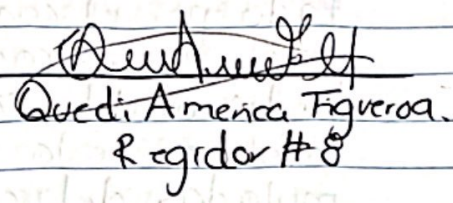 Quedi America Figueroa.
Regidor # 8